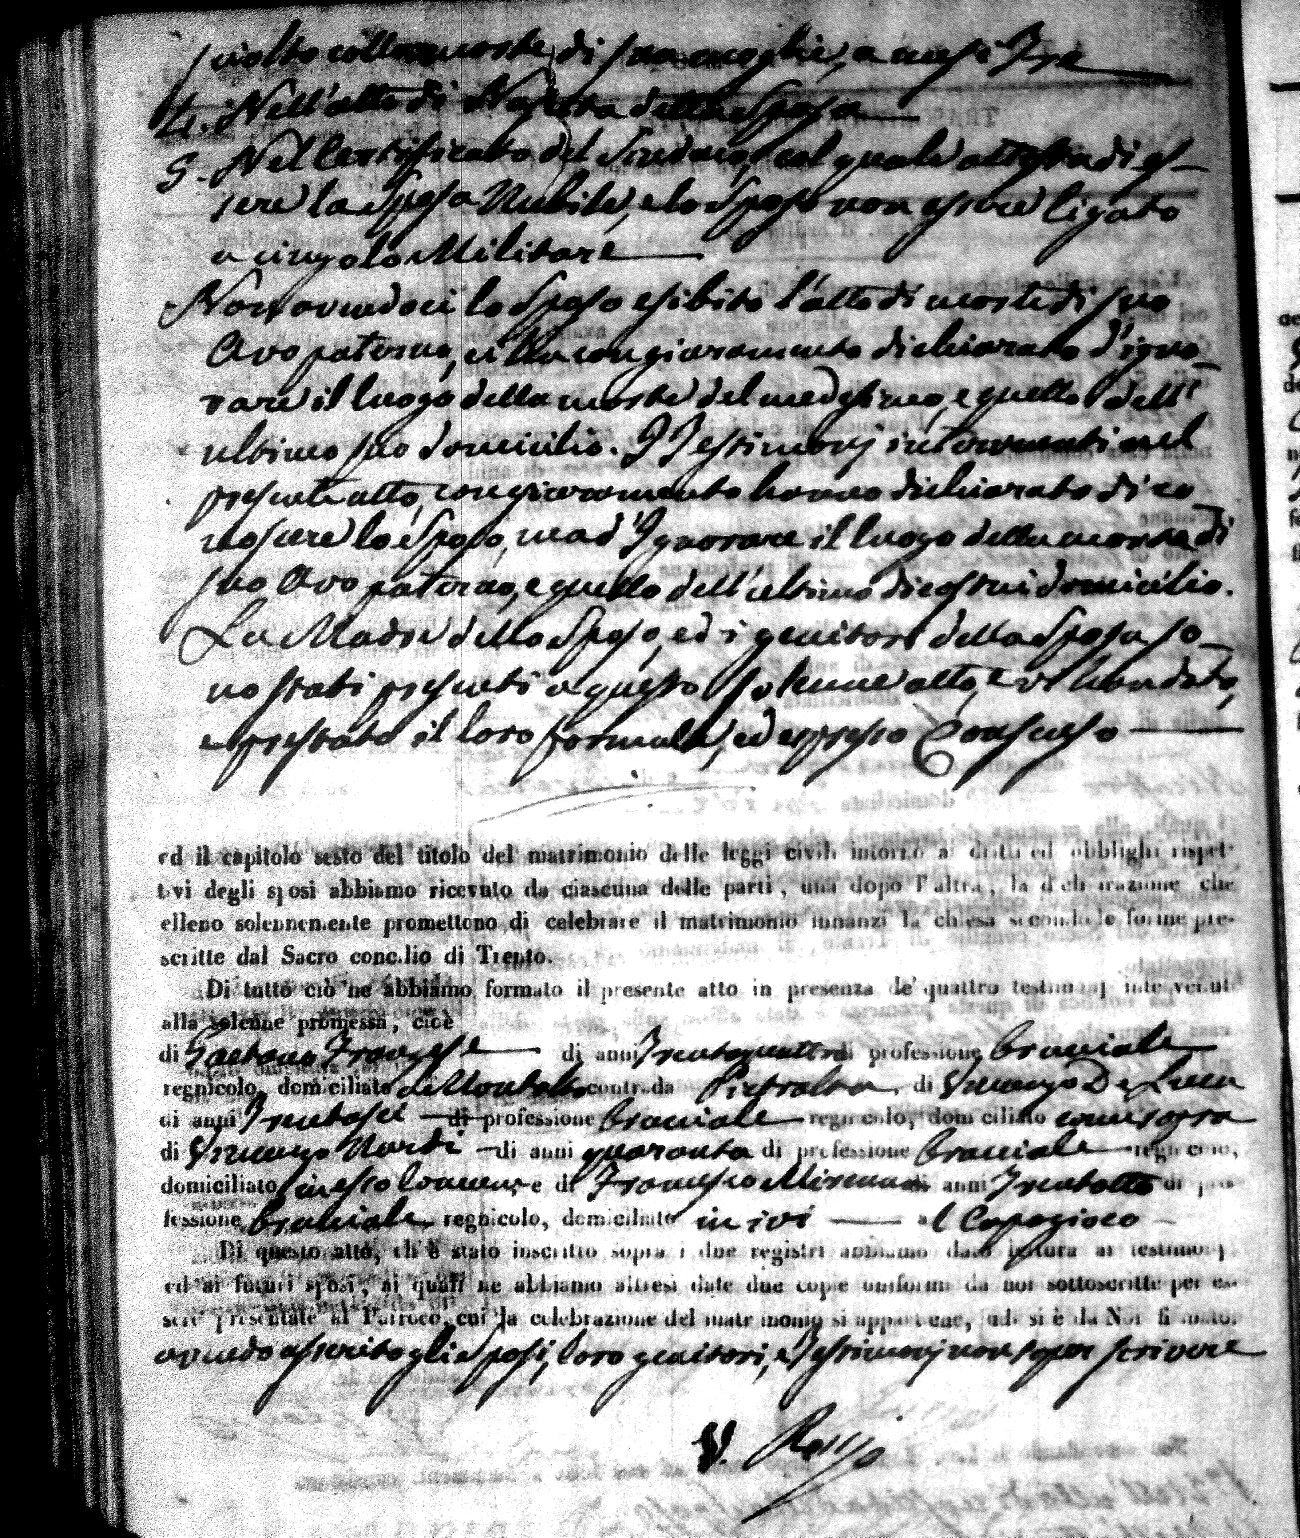 sciolto colla morte di sua moglie, a mesi tre
4. Nell'atto di Nascita della Sposa
5. Nel Certificato del Sindaco, col quale attesta di es-
sere la Sposa Nubile, e lo Sposo non essere ligato
a cingolo Militare
Non avendoci lo Sposo esibito l'atto di morte di suo
Avo paterno, ci ha con giuramento dichiarato d'igno
rare il luogo della morte del medesimo, e quello dell'
ultimo suo domicilio. I Testimonj intervenuti nel
presente atto, con giuramento hanno dichiarato di co
noscere lo Sposo, ma d'Ignorare il luogo della morte di
suo Avo paterno, e quello dell'ultimo di costui domicilio.
La Madre dello Sposo, ed i genitori della Sposa so
no stati presenti a questo solenne atto, e vi hanno dato,
e prestato il loro formale, ed espresso Consenso
ed il capitolo sesto del titolo del matrimonio delle leggi civili intorno ai dritti ed obblighi rispet-
tivi degli sposi abbiamo ricevuto da ciascuna delle parti, una dopo l'altra, la dichiarazione che
elleno solennemente promettono di celebrare il matrimonio innanzi la chiesa secondo le forme pre-
scritte dal Sacro concilio di Trento.
Di tutto ciò ne abbiamo formato il presente atto in presenza de' quattro testimonj intervenuti
alla solenne promessa, cioè
di Gaetano Franzese di anni Trentaquattro di professione bracciale
regnicolo, domiciliato contrada Pietralta di Vincenzo De Luca
di anni Trentasei di professione bracciale regnicolo, domiciliato come sopra
di Vincenzo Nardi di anni quaranta di professione bracciale regnicolo,
domiciliato in esso Comune e di Francesco anni Trentotto di pro
fessione bracciale regnicolo, domiciliato in ivi al Capogioco
Di questo atto, ch'è stato inscritto sopra i due registri abbiamo dato lettura ai testimonj
ed ai futuri sposi, ai quali ne abbiamo altresì date due copie uniformi da noi sottoscritte per es-
sere presentate al Parroco, cui la celebrazione del matrimonio si appartiene, indi si è da Noi firmato,
avendo asserito gli Sposi, loro genitori, e Testimonj non saper scrivere